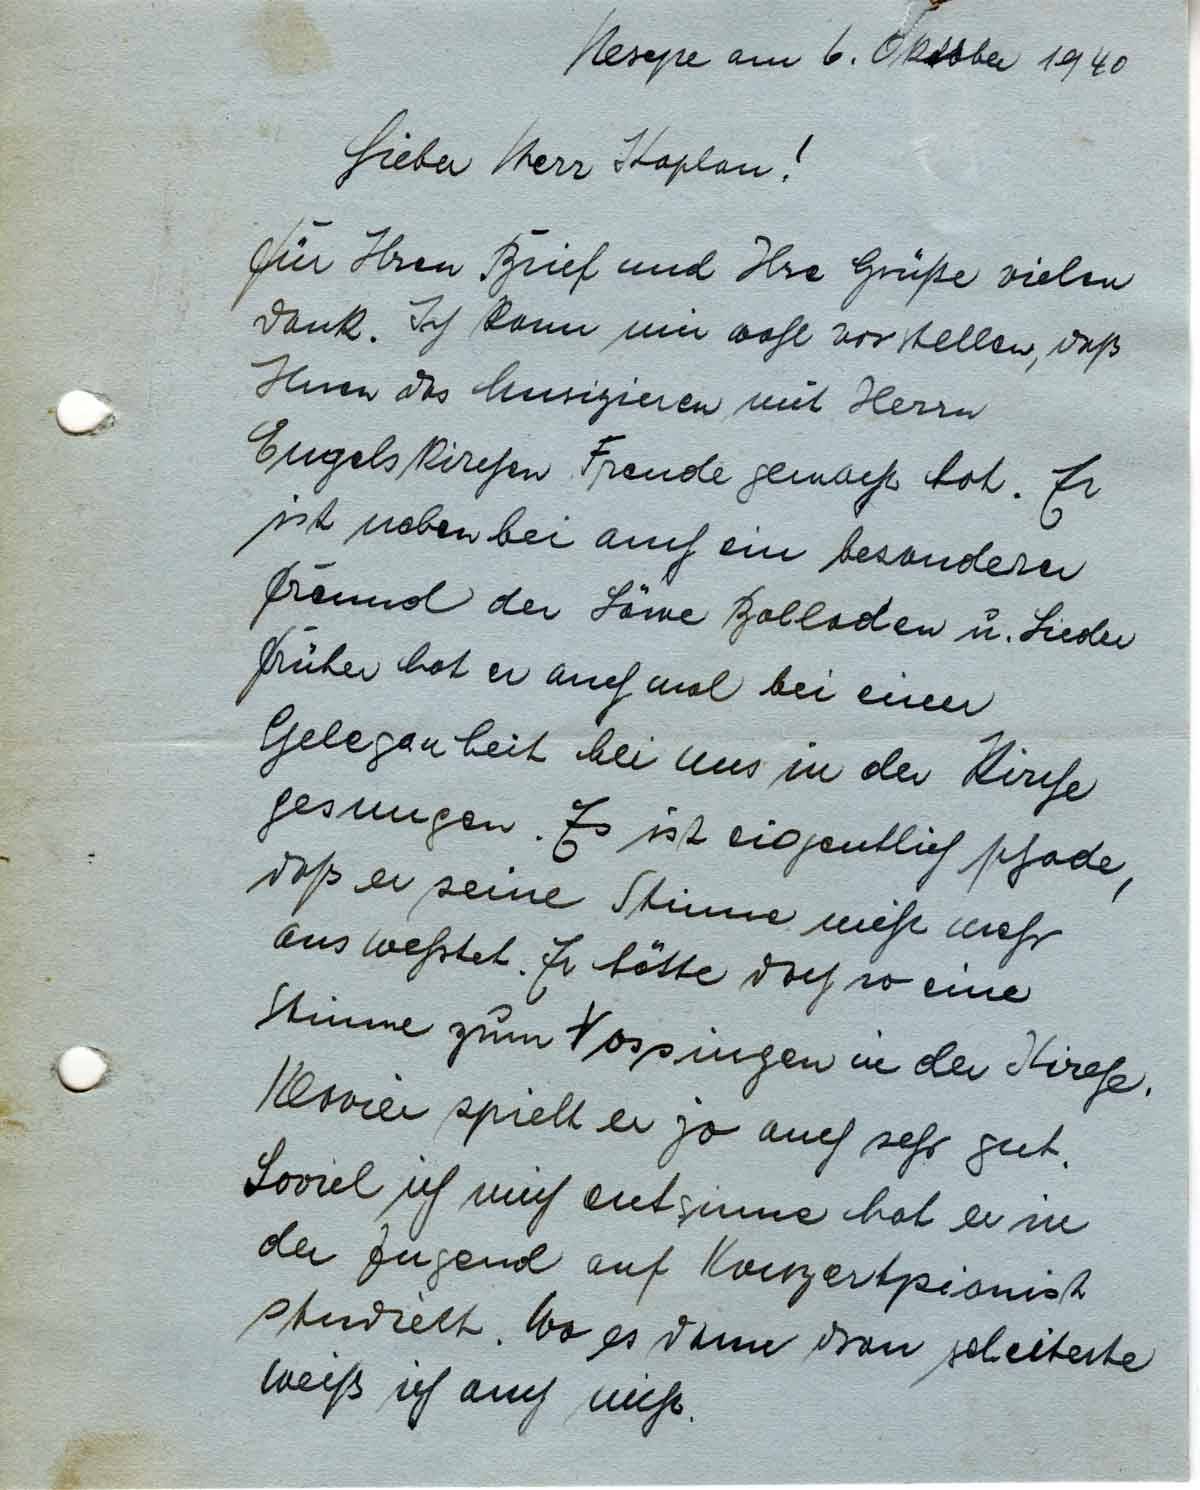 Nesepe am 6. Oktober 1940
Lieber Herr Kaplan!
Für Ihren Brief und Ihre Grüße vielen
Dank. Ich kann mir wohl vorstellen, daß
Ihnen das Musizieren mit Herrn
Engelskirchen Freude gemacht hat. Er
ist nebenbei auch ein besonderer
Freund der Löwe Balladen u. Lieder
früher hat er auch mal bei einer
Gelegenheit bei uns in der Kirche
gesungen. Es ist eigentlich schade,
daß er seine Stimme nicht mehr
auswertet. Er hätte doch so eine
Stimme zum Vorsingen in der Kirche.
Klavier spielt er ja auch sehr gut.
Soviel ich mich entsinne hat er in
der Jugend auf Konzertpianist
studiert. Wo es dann dran scheiterte
weiß ich auch nicht.